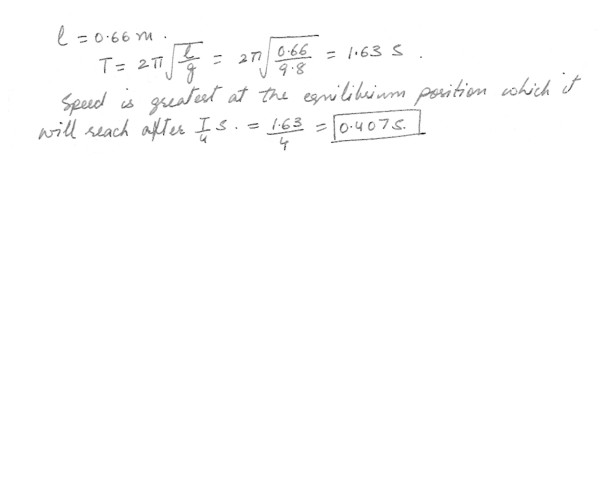 l = 0.66 m.
T = 2π√(l/g) = 2π√(0.66/9.8) = 1.63 s.
Speed is greatest at the equilibrium position which it
will reach after T/4 s. = 1.63/4 = 0.407 s.